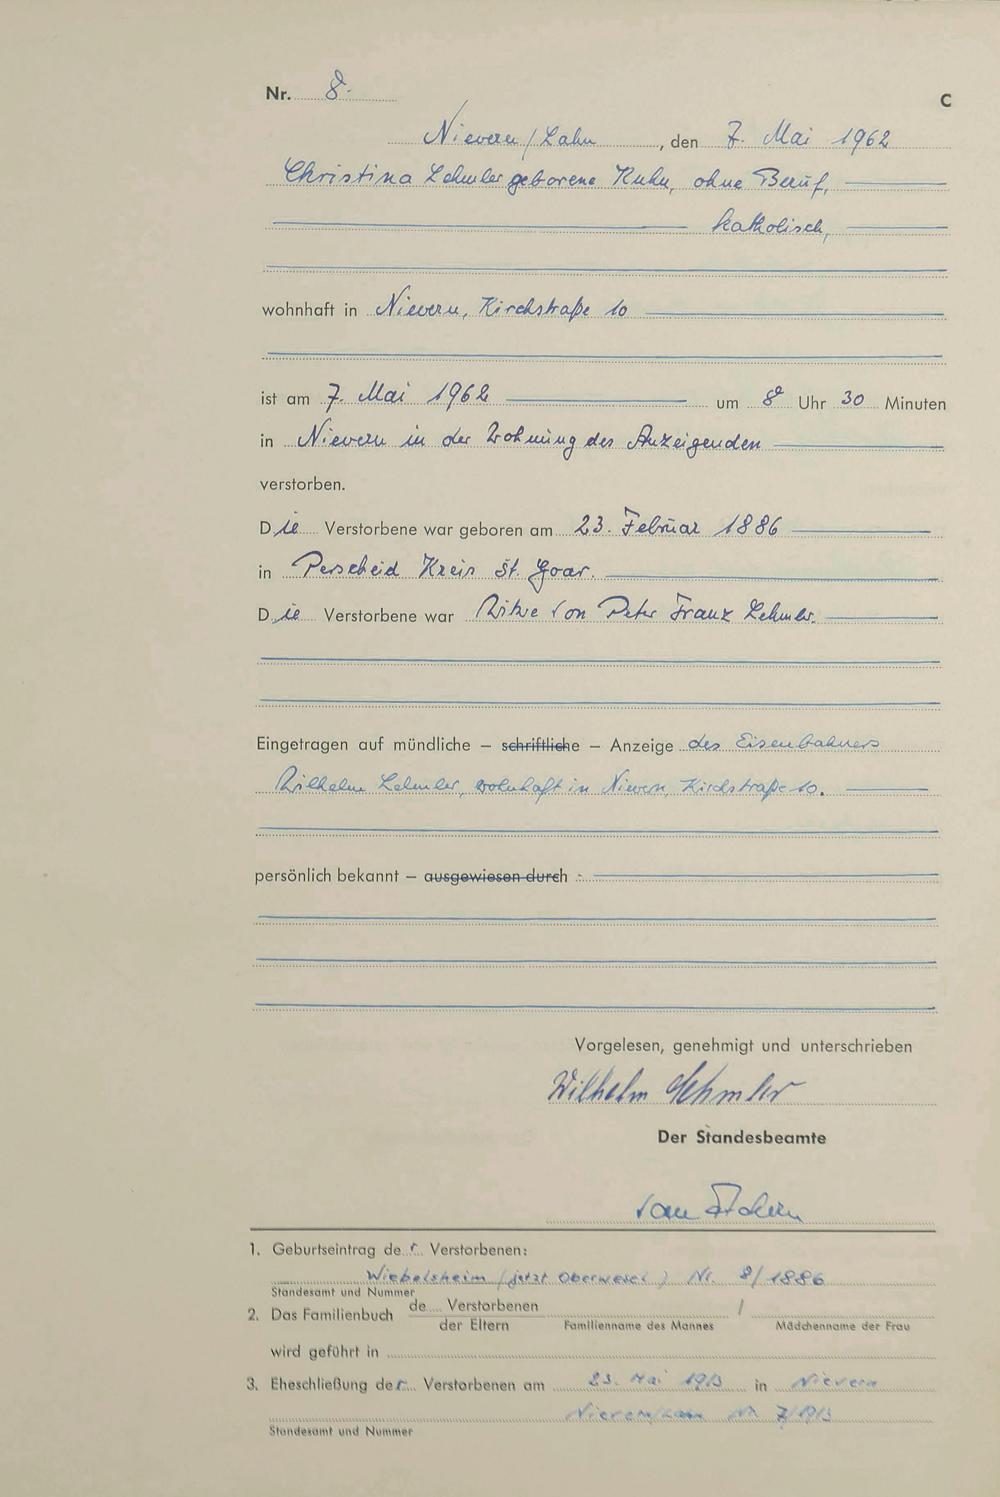 Nr. 8.
C
Nievern/Lahn, den 7. Mai 1962
Christina Lehmler geborene Kuhn, ohne Beruf,
katholisch,
wohnhaft in Nievern, Kirchstraße 10
ist am 7. Mai 1962 um 8 Uhr 30 Minuten
in Nievern in der Wohnung des Anzeigenden
verstorben.
Die Verstorbene war geboren am 23. Februar 1886
in Perscheid Kreis St. Goar.
Die Verstorbene war Witwe von Peter Franz Lehmler.
Eingetragen auf mündliche – schriftliche – Anzeige des Eisenbahners
Wilhelm Lehmler, wohnhaft in Nievern, Kirchstraße 10.
persönlich bekannt – ausgewiesen durch
Vorgelesen, genehmigt und unterschrieben
Wilhelm Lehmler
Der Standesbeamte
1. Geburtseintrag der Verstorbenen:
Wiebelsheim (jetzt Oberwesel) Nr. 8/1886
Standesamt und Nummer
2. Das Familienbuch de Verstorbenen /
der Eltern Familienname des Mannes Mädchenname der Frau
wird geführt in
3. Eheschließung der Verstorbenen am 23. Mai 1913 in Nievern
Nievern/Lahn Nr. 7/1913
Standesamt und Nummer